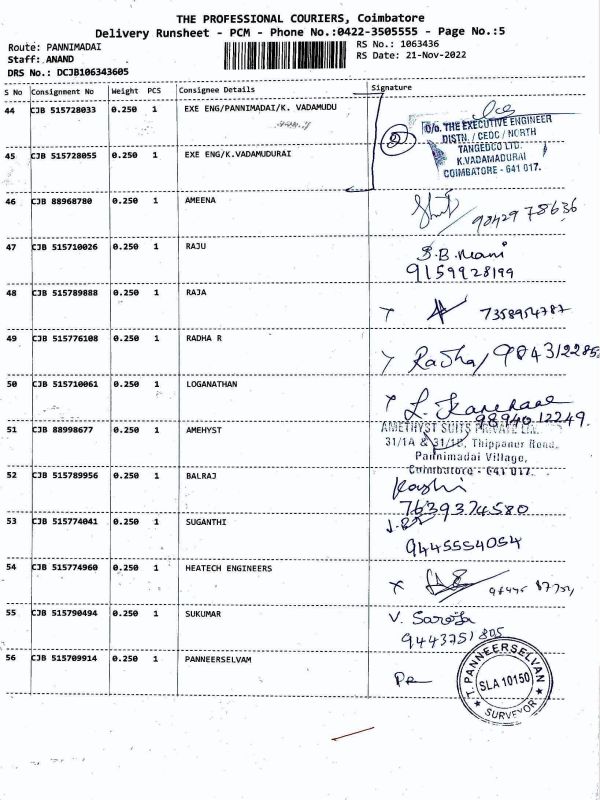 THE PROFESSIONAL COURIERS, Coimbatore
Delivery Runsheet - PCM - Phone No.:0422-3505555 - Page No.:5
Route: PANNIMADAI
Staff: ANAND
DRS No.: DCJB106343605
RS No.: 1063436
RS Date: 21-Nov-2022
S No Consignment No Weight PCS Consignee Details Signature
44 CJB 515728033 0.250 1 EXE ENG/PANNIMADAI/K. VADAMUDU
2
O/o. THE EXECUTIVE ENGINEER
DISTN. / CEDC / NORTH
TANGEDCO LTD.
K.VADAMADURAI
COIMBATORE - 641 017.
45 CJB 515728055 0.250 1 EXE ENG/K.VADAMUDURAI
46 CJB 88968780 0.250 1 AMEENA
9842978636
47 CJB 515710026 0.250 1 RAJU
S.B.Mani
9159928199
48 CJB 515789888 0.250 1 RAJA
7358954787
49 CJB 515776108 0.250 1 RADHA R
Radha / 984312285
50 CJB 515710061 0.250 1 LOGANATHAN
9894012249.
51 CJB 88998677 0.250 1 AMEHYST
AMETHYST SUITS PRIVATE LTD.
31/1A & 31/1B, Thippanur Road,
Pannimadai Village,
Coimbatore - 641 017.
52 CJB 515789956 0.250 1 BALRAJ
7639374580
53 CJB 515774041 0.250 1 SUGANTHI
9445554054
54 CJB 515774960 0.250 1 HEATECH ENGINEERS
55 CJB 515790494 0.250 1 SUKUMAR
V. Saroja
9443751805
56 CJB 515709914 0.250 1 PANNEERSELVAM
T. PANNEERSELVAN
SLA 10150
SURVEYOR